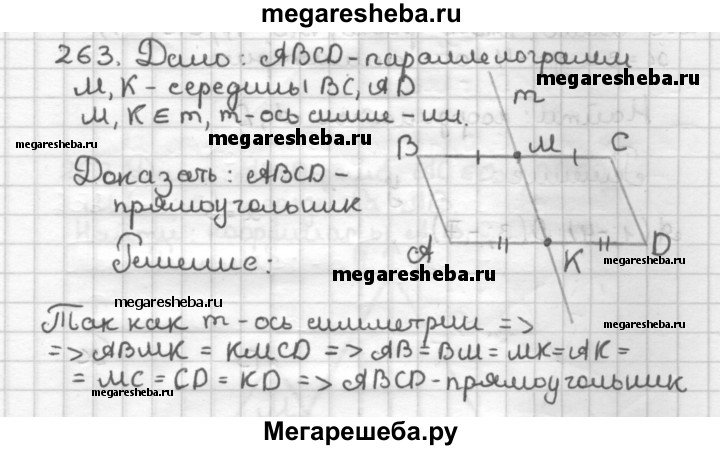 megaresheba.ru
263. Дано: ABCD - параллелограмм
M, K - середины BC, AD
megaresheba.ru
m
M, K ∈ m, m - ось симме - ии.
megaresheba.ru
megaresheba.ru
B M C
Доказать: ABCD -
прямоугольник
A K D
Решение:
megaresheba.ru
megaresheba.ru
megaresheba.ru
Так как m - ось симметрии =>
megaresheba.ru
=> ABMK = KMCD => AB = BM = MK = AK =
= MC = CD = KD => ABCD - прямоугольник
megaresheba.ru
Мегарешеба.ру